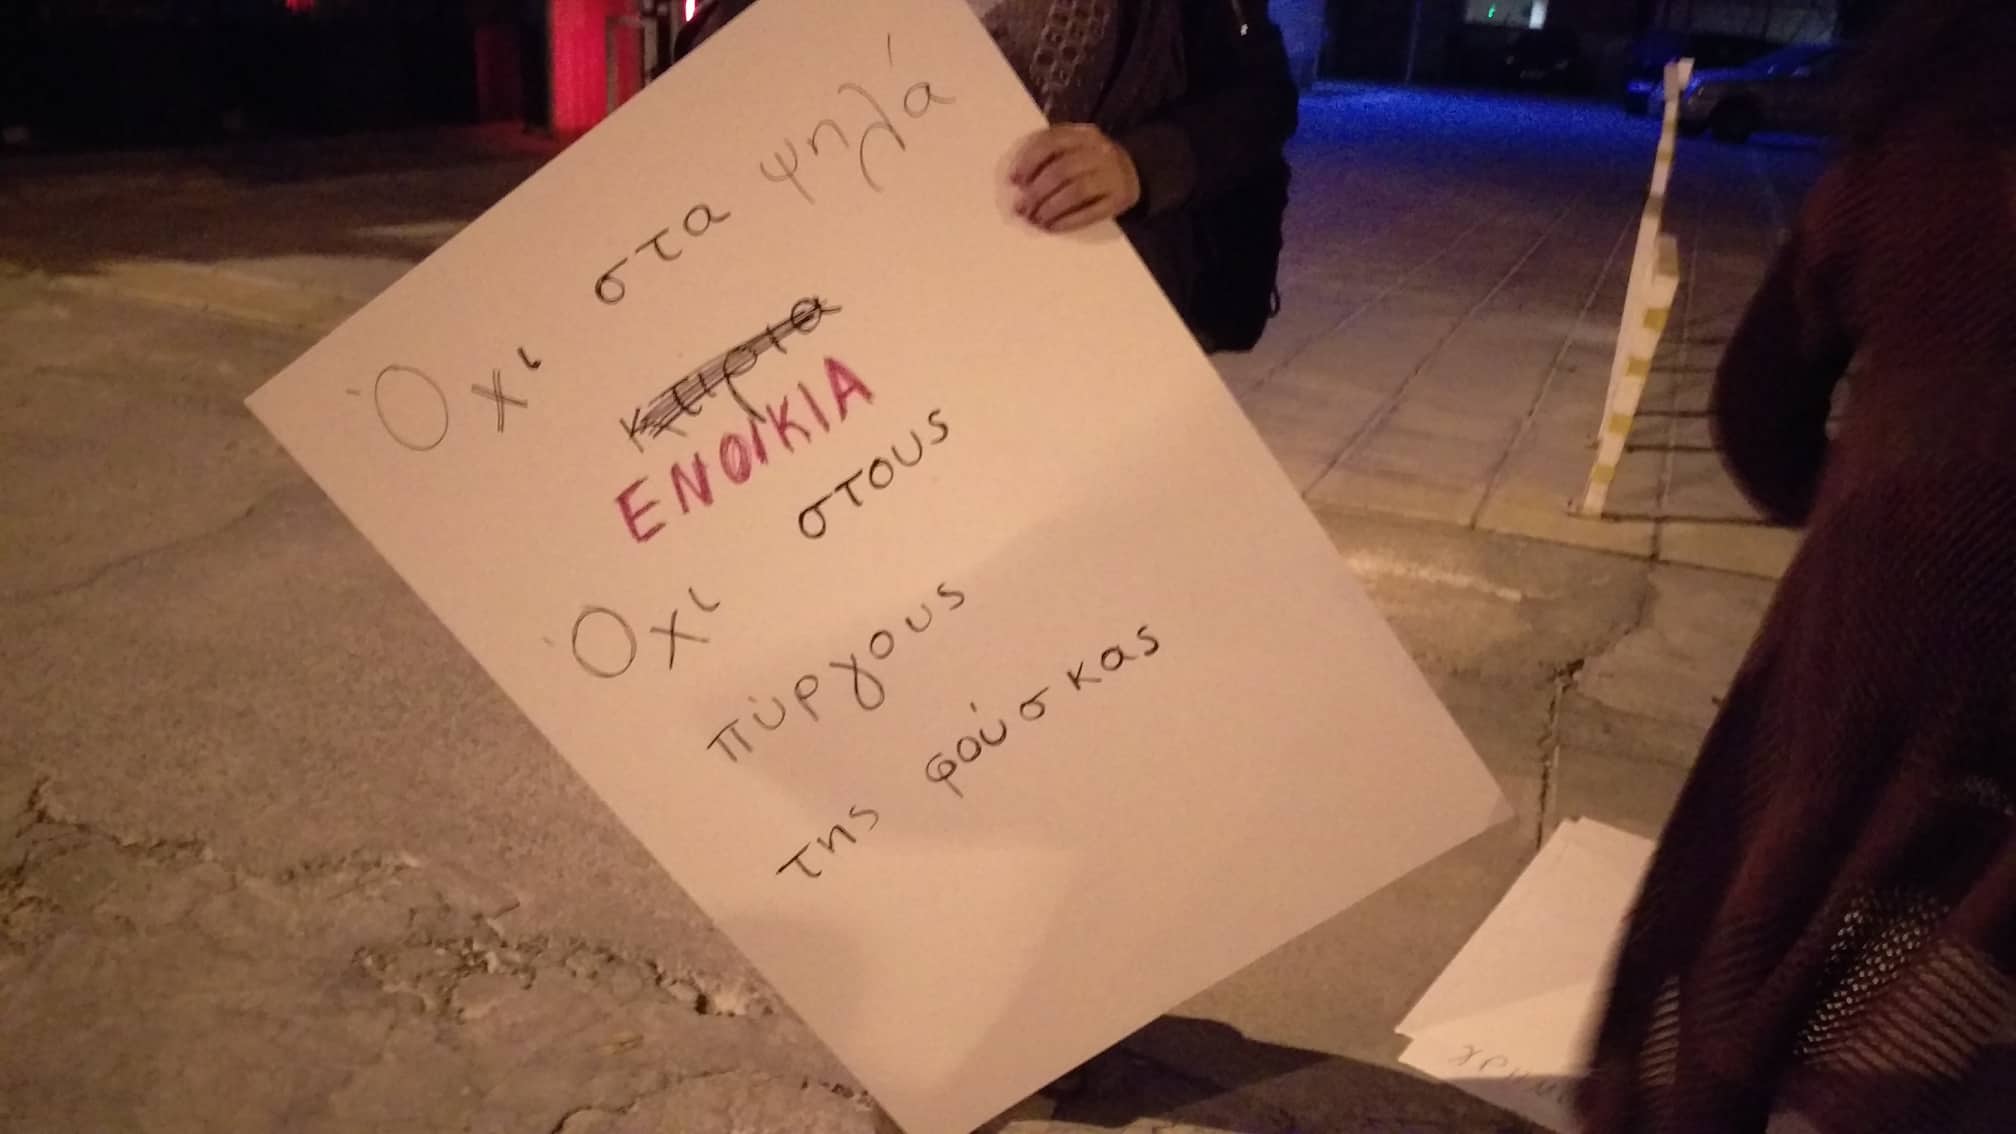 Όχι στα ψηλά
κτιρια
ΕΝΟΙΚΙΑ
Όχι στους
πύργους
της φούσκας